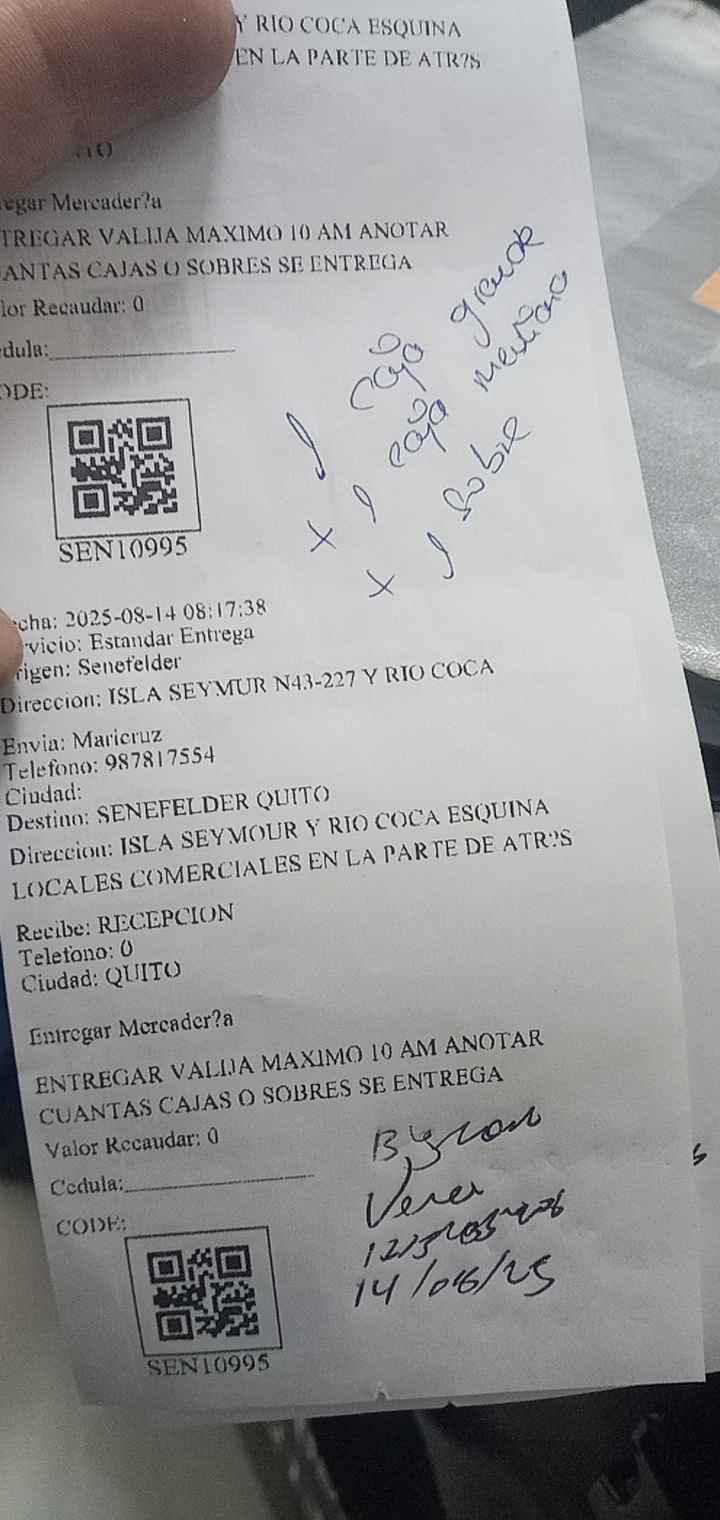 Y RIO COCA ESQUINA
EN LA PARTE DE ATR?S
egar Mercader?a
TREGAR VALIJA MAXIMO 10 AM ANOTAR
ANTAS CAJAS O SOBRES SE ENTREGA
lor Recaudar: 0
dula:
ODE:
1 caja grande
x 1 caja mediana
x 1 sobre
SEN10995
echa: 2025-08-14 08:17:38
rvicio: Estandar Entrega
rigen: Senefelder
Direccion: ISLA SEYMUR N43-227 Y RIO COCA
Envia: Maricruz
Telefono: 987817554
Ciudad:
Destino: SENEFELDER QUITO
Direccion: ISLA SEYMOUR Y RIO COCA ESQUINA
LOCALES COMERCIALES EN LA PARTE DE ATR?S
Recibe: RECEPCION
Telefono: 0
Ciudad: QUITO
Entregar Mercader?a
ENTREGAR VALIJA MAXIMO 10 AM ANOTAR
CUANTAS CAJAS O SOBRES SE ENTREGA
Valor Recaudar: 0
Cedula:
CODE:
Byron
Vera
14/08/25
SEN10995